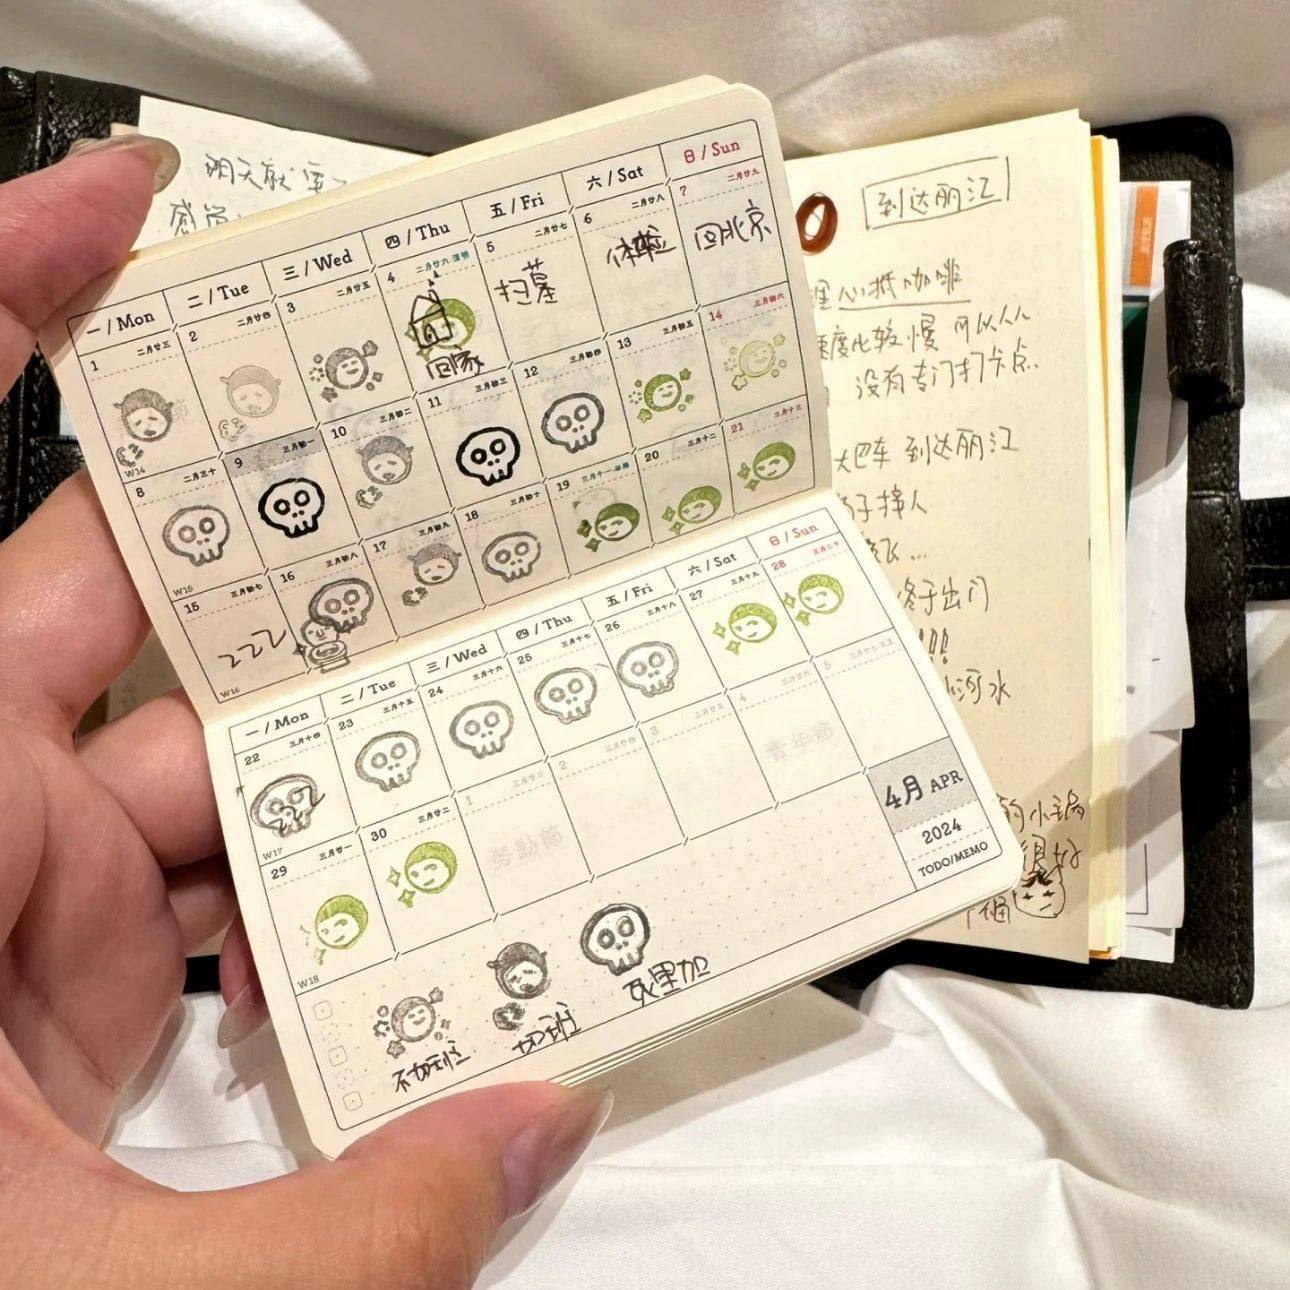 阴天就
感觉
一 / Mon 二 / Tue 三 / Wed 四 / Thu 五 / Fri 六 / Sat 日 / Sun
1 二月廿三 2 二月廿四 3 二月廿五 4 二月廿六·清明 5 二月廿七 6 二月廿八 7 二月廿九
回家 扫墓 休息 回北京
W14
8 二月三十 9 三月初一 10 三月初二 11 三月初三 12 三月初四 13 三月初五 14 三月初六
W15
15 三月初七 16 三月初八 17 三月初九 18 三月初十 19 三月十一 20 三月十二 21 三月十三
zzz
W16
一 / Mon 二 / Tue 三 / Wed 四 / Thu 五 / Fri 六 / Sat 日 / Sun
22 三月十四 23 三月十五 24 三月十六 25 三月十七 26 三月十八 27 三月十九 28 三月二十
W17
29 三月廿一 30 三月廿二 1 三月廿三 2 三月廿四 3 三月廿五 4 三月廿六 5
勞動節 青年節
W18
4月 APR
2024
TODO/MEMO
不加班 加班 死里加
到达丽江
心抵咖啡
速度比较慢 可以从
没有专门打卡点..
大巴车 到达丽江
接人
飞...
终于出门
!!!
河水
的小锅
很好